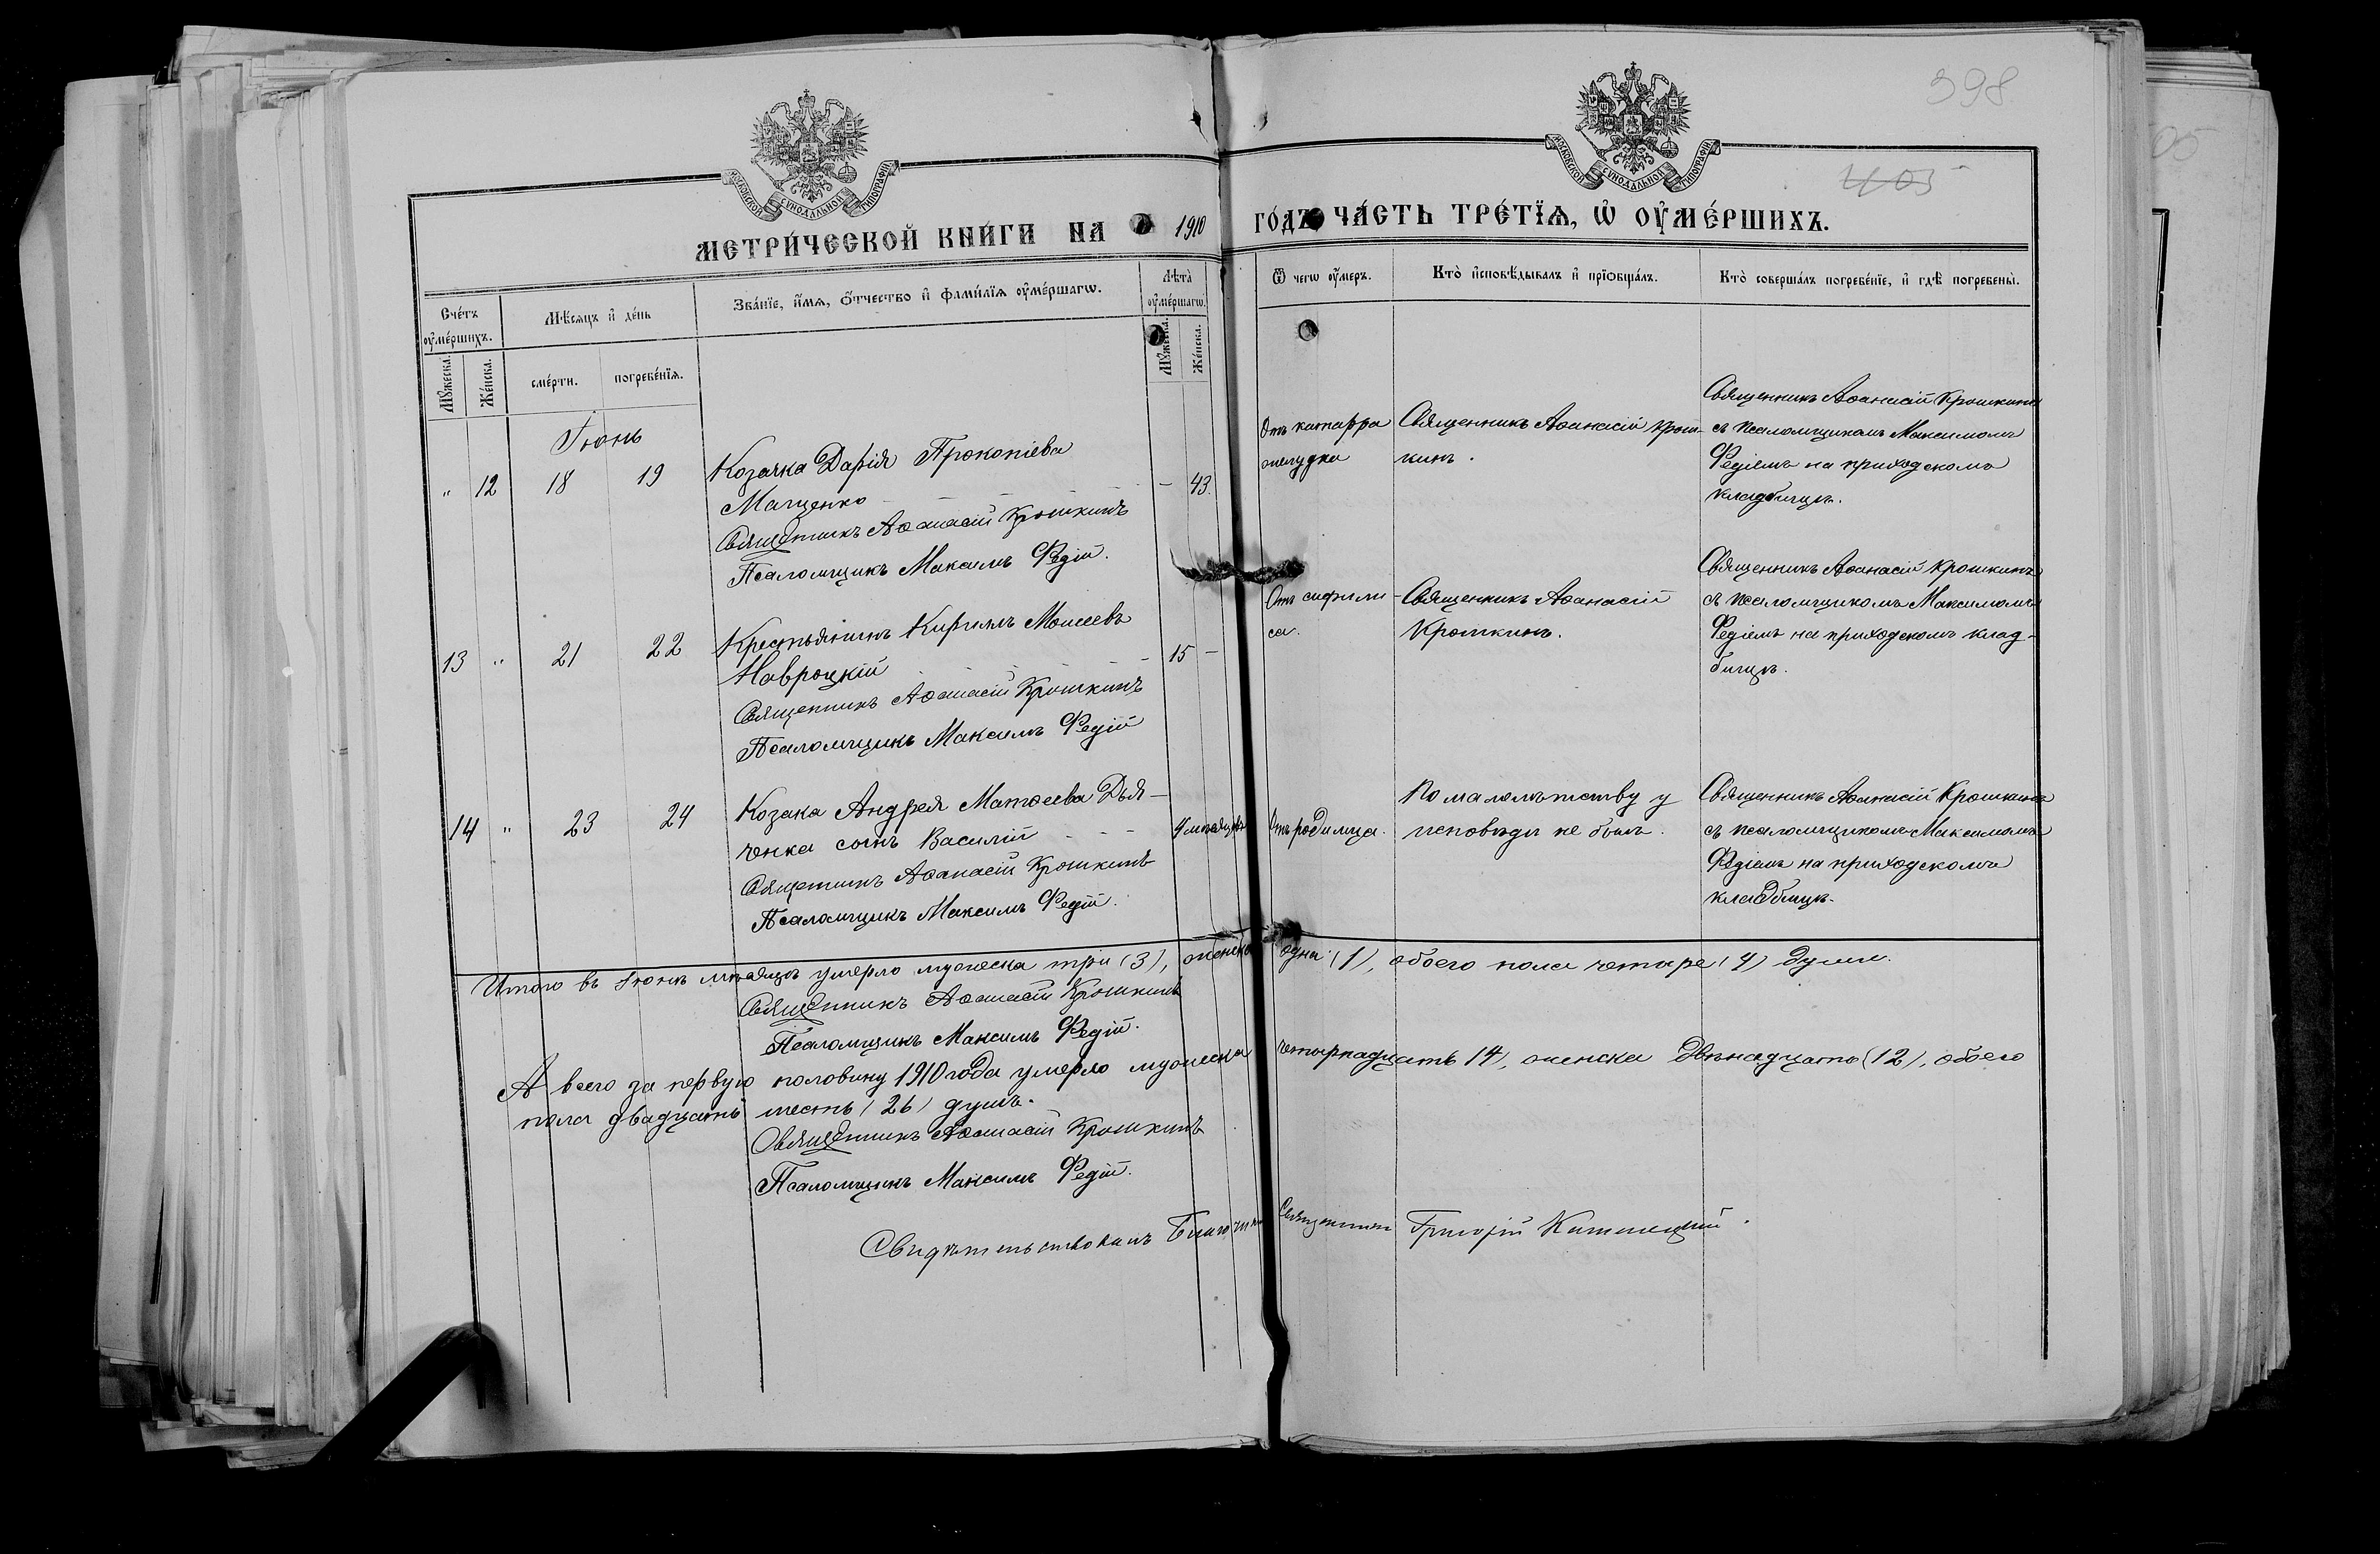 398
405
05
МОСКОВСКОЙ СѴНОДАЛЬНОЙ ТИПОГРАФІИ
МОСКОВСКОЙ СѴНОДАЛЬНОЙ ТИПОГРАФІИ
МЕТРИ́ЧЕСКОЙ КНИ́ГИ НА 1910 ГО́ДЪ ЧА́СТЬ ТРЕ́ТЇѦ, Ѡ҆ ОУ҆МЕ́РШИХЪ.
Сче́тъ оу҆ме́ршихъ.
Мꙋ́жеска.
Же́нска.
Мѣ́сѧцъ и҆ де́нь
сме́рти.
погребе́нїѧ.
Зва́нїе, и҆́мѧ, ѻ҆́тчество и҆ фами́лїѧ оу҆ме́ршагѡ.
Лѣта̀ оу҆ме́ршагѡ.
Мꙋ́жеска.
Же́нска.
Ѿ чегѡ̀ оу҆́меръ.
Кто̀ и҆сповѣ́дывалъ и҆ прїѡбща́лъ.
Кто̀ соверша́лъ погребе́нїе, и҆ гдѣ̀ погребены̀.
Іюнь
" 12 18 19
Козачка Дарія Прокопіева
Мащенко - 43.
Священникъ Аѳанасій Крошкинъ
Псаломщикъ Максимъ Федій.
Отъ катарра
желудка
Священникъ Аѳанасій Крош-
кинъ.
Священникъ Аѳанасій Крошкинъ
съ псаломщикомъ Максимомъ
Федіемъ на приходскомъ
кладбищѣ.
13 " 21 22
Крестьянинъ Кириллъ Моисеевъ
Навроцкій 15 -
Священникъ Аѳанасій Крошкинъ
Псаломщикъ Максимъ Федій
Отъ сифили-
са.
Священникъ Аѳанасій
Крошкинъ.
Священникъ Аѳанасій Крошкинъ
съ псаломщикомъ Максимомъ
Федіемъ на приходскомъ клад-
бищѣ.
14 " 23 24
Козака Андрея Матѳеева Дья-
ченка сынъ Василій - - - 4 мѣсяцевъ
Священникъ Аѳанасій Крошкинъ
Псаломщикъ Максимъ Федій.
Отъ родимца.
По малолѣтству у
исповѣди не былъ.
Священникъ Аѳанасій Крошкинъ
съ псаломщикомъ Максимомъ
Федіемъ на приходскомъ
кладбищѣ.
Итого въ Іюнѣ мѣсяцѣ умерло мужеска три (3), женска одна (1), обоего пола четыре (4) души.
Священникъ Аѳанасій Крошкинъ
Псаломщикъ Максимъ Федій.
А всего за первую половину 1910 года умерло мужеска четырнадцать 14), женска двѣнадцать (12), обоего
пола двадцать шесть (26) душъ.
Священникъ Аѳанасій Крошкинъ
Псаломщикъ Максимъ Федій.
Свидѣтельствовалъ Священникъ Григорій